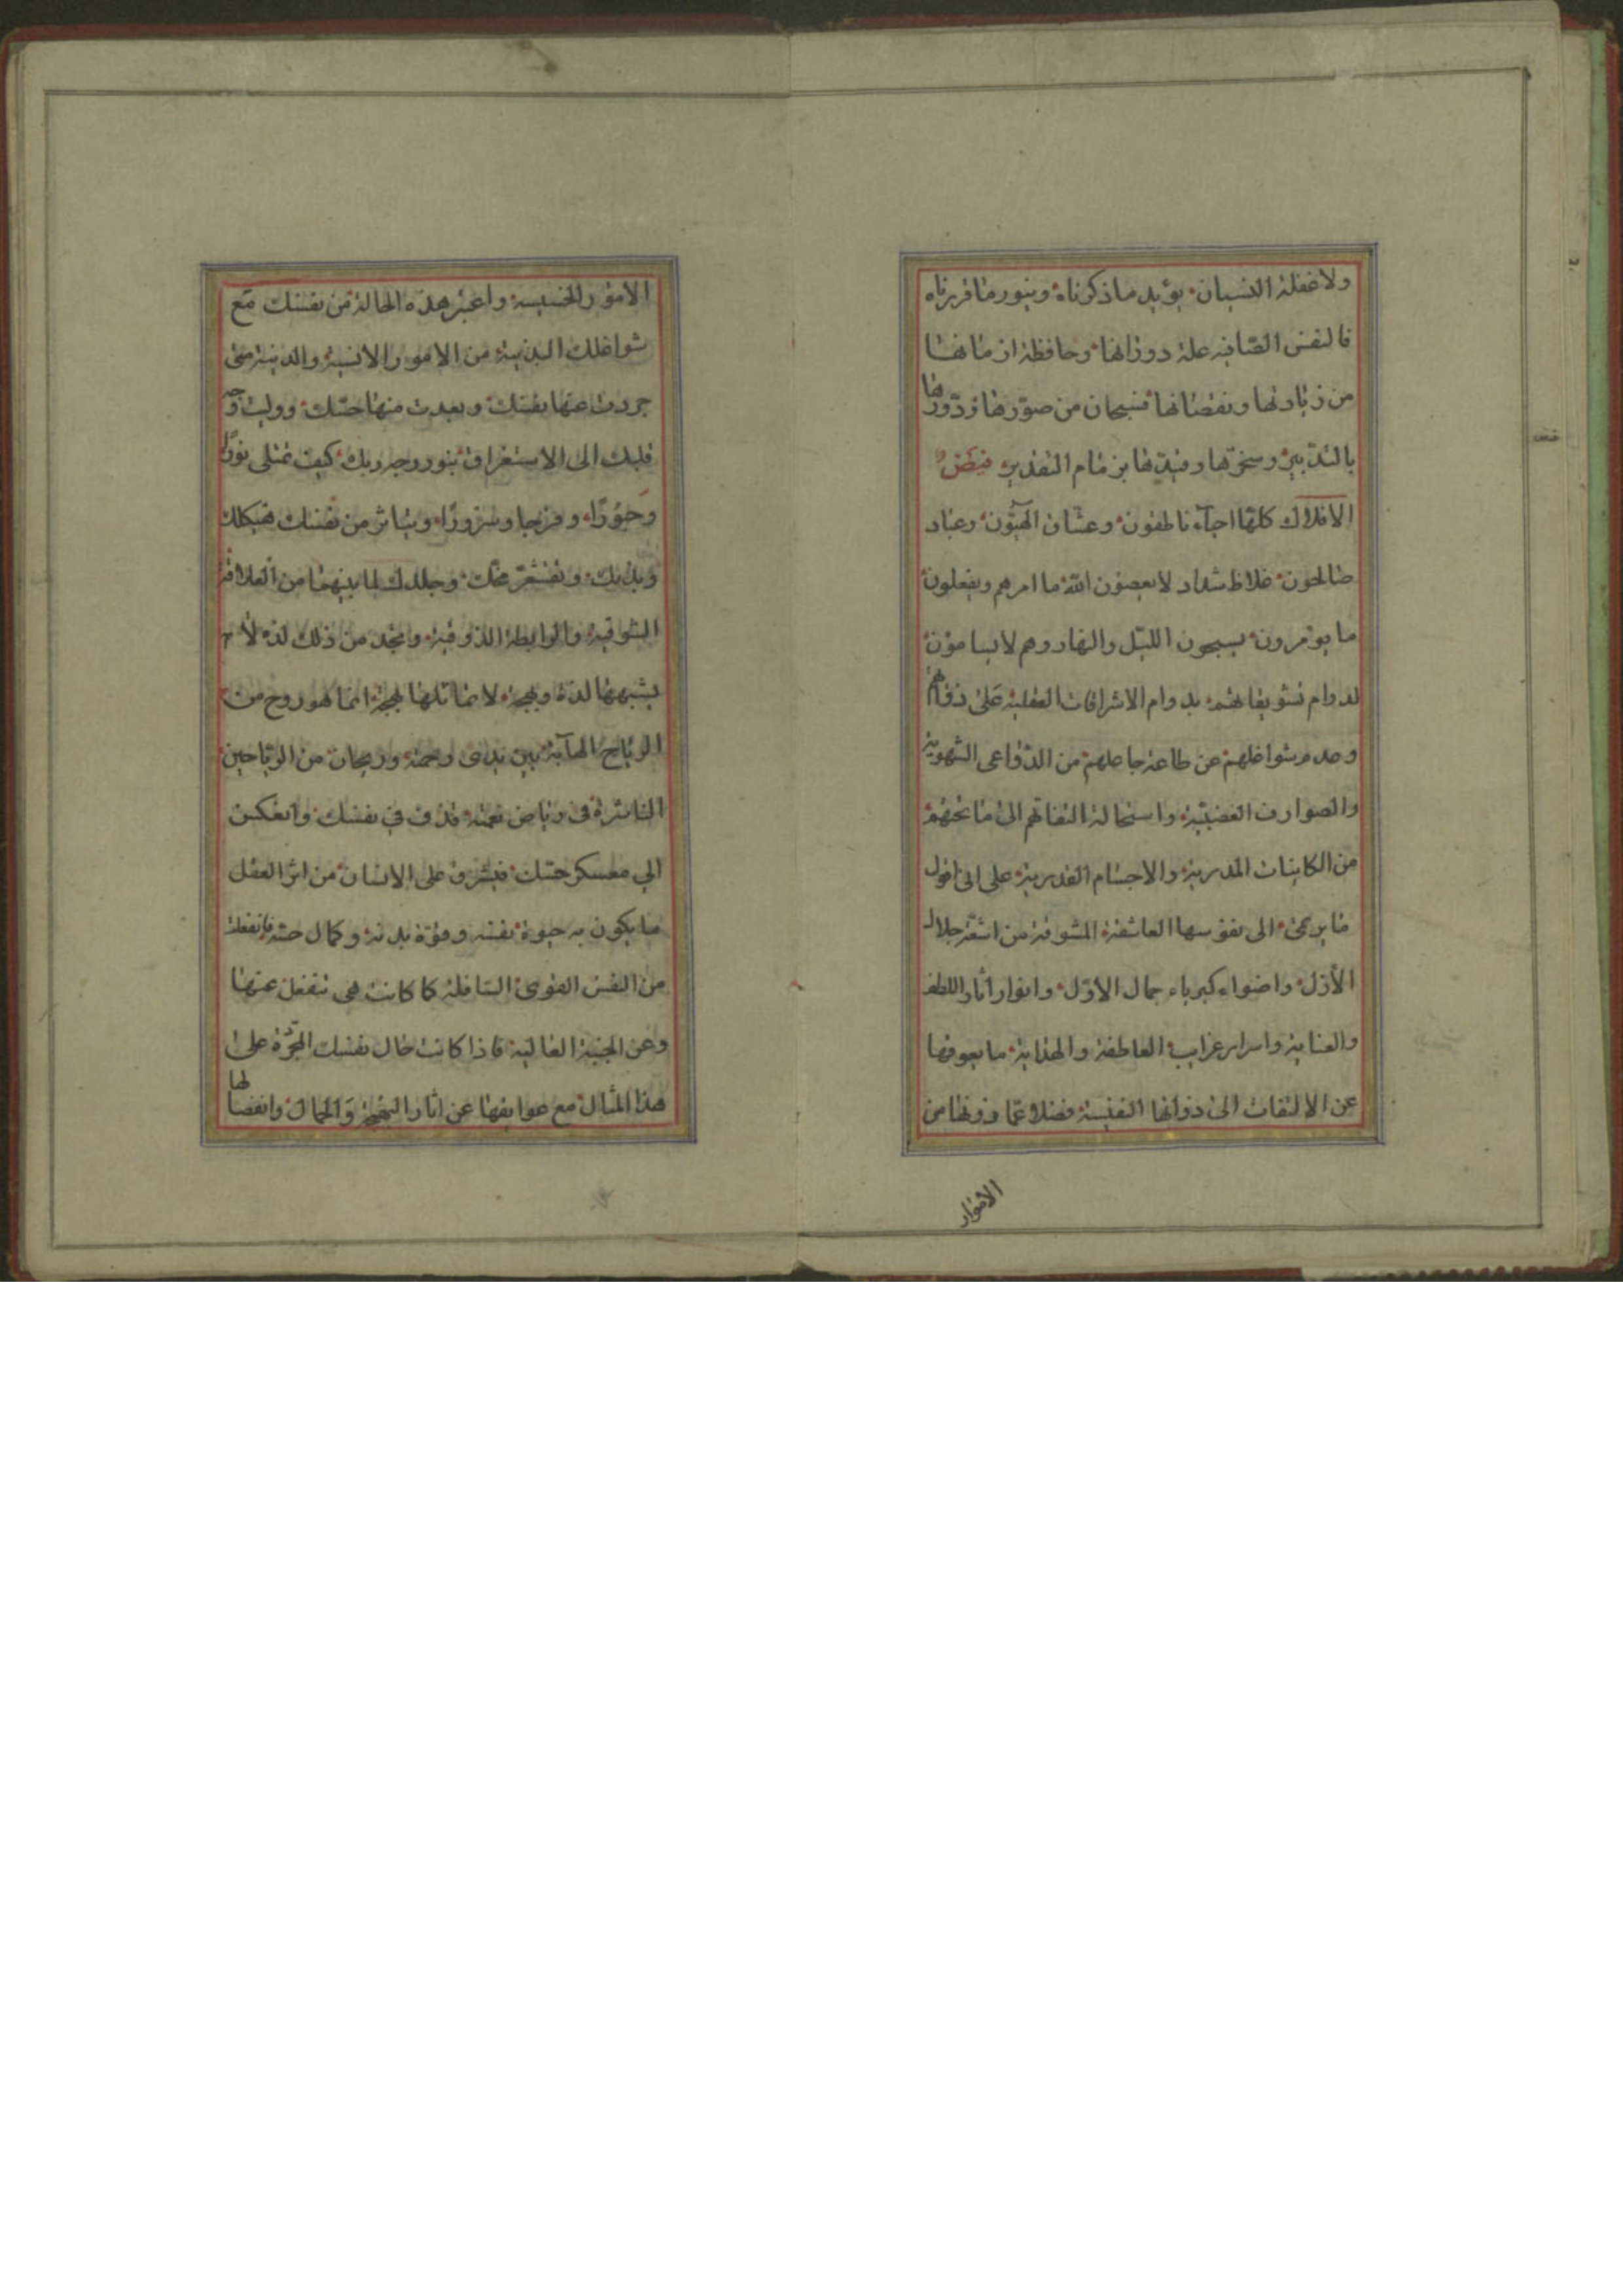 ولا غفلة النسيان يؤيد ما ذكرناه وينور ما قررناه
فالنفس الصافية علة دورانها وحافظة ازمانها
من زيادتها ونقصانها فسبحان من صورها ودورها
بالتدبير وسخرها وقيدها بزمام التقدير فيض
الافلاك كلها احياء ناطقون وعشاق الهيون وعباد
صالحون غلاظ شداد لا يعصون الله ما امرهم ويفعلون
ما يؤمرون يسبحون الليل والنهار وهم لا يسامون
لدوام تشويقاتهم بدوام الاشراقات العقلية على ذواتهم
وعدم شواغلهم عن طاعة جاعلهم من الدواعى الشهوية
والصوارف الغضبية واستحالة التفاتهم الى ما تحتهم
من الكاينات المدرية والاجسام القدرية على انى اقول
ما يرمى الى نفوسها العاشقة المشوقة من اشعة جلال
الأول واضواء كبرياء جمال الاول وانوار اثار اللطف
والعناية واسرار غرايب العاطفة والهداية ما يعوقها
عن الالتفات الى ذواتها النفيسة فضلا عما دونها من
الامور
الامور الخسيسة واعتبر هذه الحالة من نفسك مع
شواغلك البدنية من الامور الانسية والدنية متى
جردت عنها نفسك وبعدت منها حسك ووليت وجه
قلبك الى الاستغراق بنور وجه ربك كيف تمتلى نورًا
وحبورًا وفرحا وسرورًا ويتاثر من نفسك هيكلك
وبدنك وتقشعر مخك وجلدك لما بينهما من العلاقة
الشوقية والرابطة الذوقية وتجد من ذلك لذة لا
يشبهها لذة وبهجة لا تماثلها بهجة انما هو روح من
الرياح الهابة بين يدى رحمته وريحان من الرياحين
الناشرة فى رياض نعمته قذف في نفسك وانعكس
الي معسكر حسك فيشرق على الانسان من اثر العقل
ما يكون به حيوة نفسه وقوة بدنه وكمال حسه فانفعلت
من النفس القوى السافلة كما كانت هى تنفعل عنها
وعن الجنبة العالية فاذا كانت حال نفسك المجردة على
هذا المثال مع عوايقها عن اثار البهجة والجمال وانفصالها